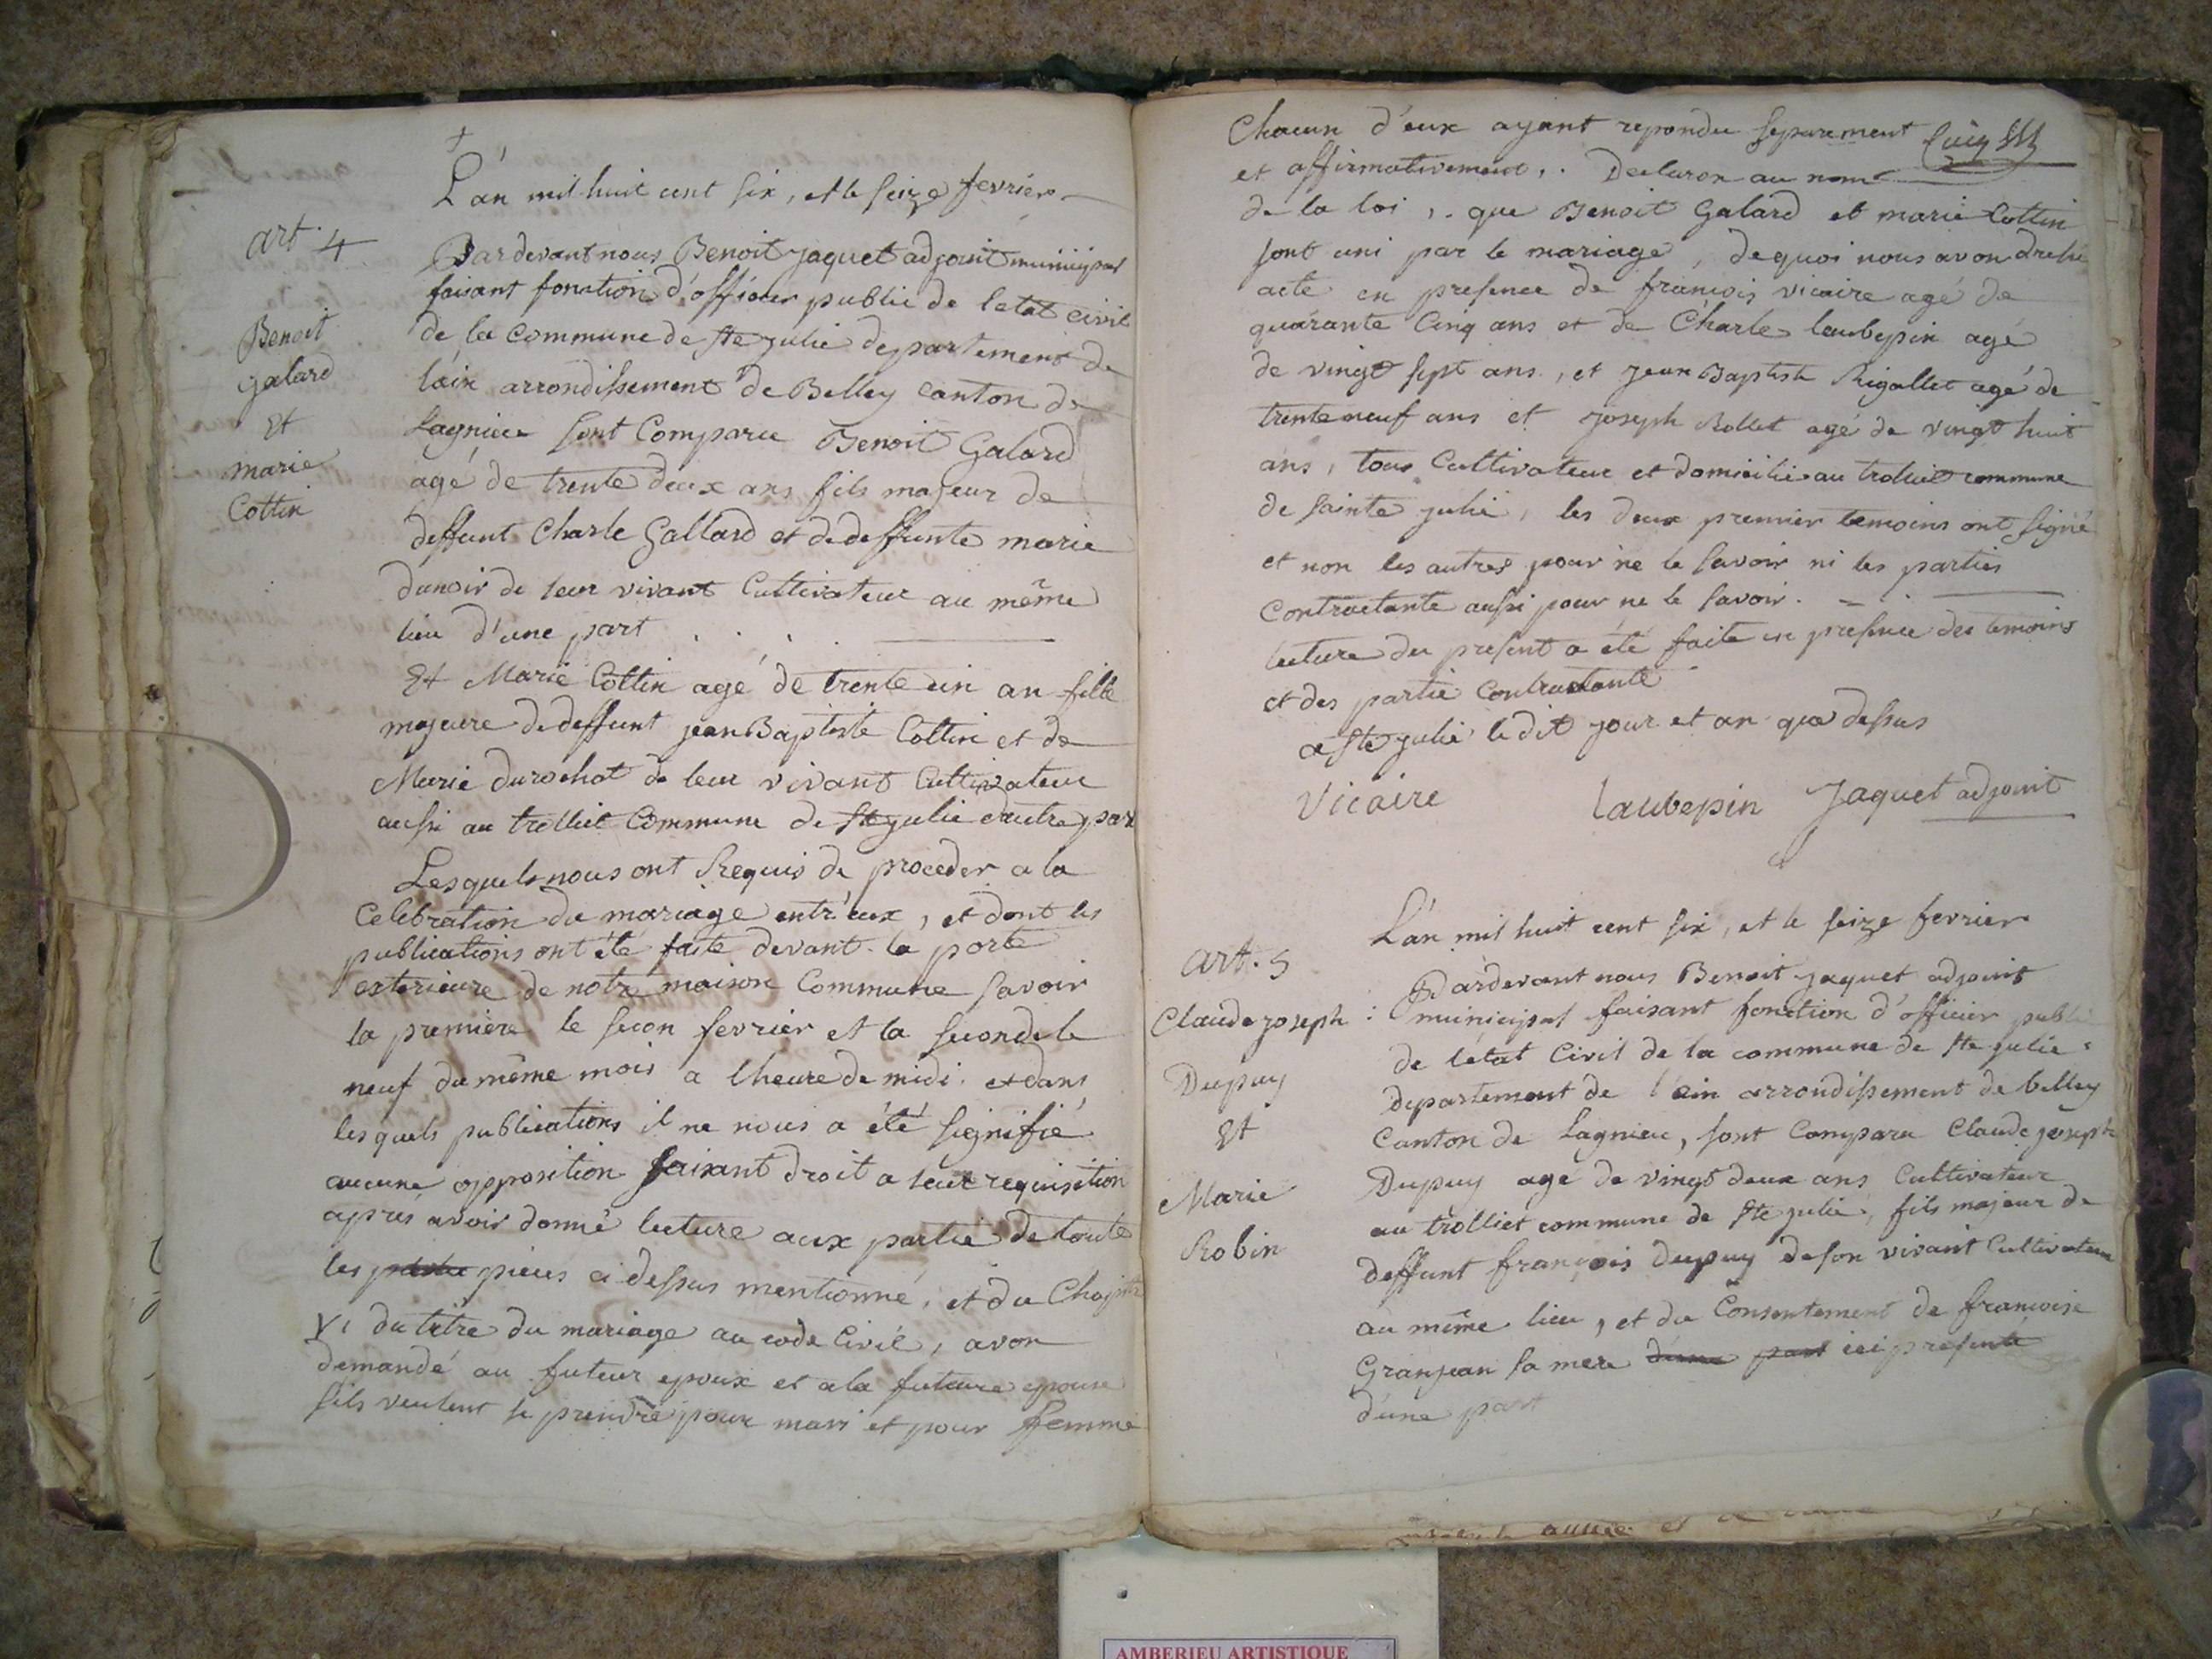 L'an mil huit cent six, et le seize fevrier
art. 4
Pardevant nous Benoit Jaquet adjoint municipal
faisant fonction d'officier public de letat civil
de la Commune de Ste julie departement de
Benoit
galard
Et
marie
Cottin
l'ain arrondissement de Belley canton de
Lagnieu sont Comparu Benoit Galard
agé de trente deux ans fils majeur de
deffunt Charle Gallard et de deffunte marie
dunoir de leur vivant Cultivateur au même
lieu d'une part
Et Marie Cottin agé de trente un an fille
majeure de deffunt jean Baptiste Cottin et de
Marie durochat de leur vivant Cultivateur
aussi au trolliet Commune de Ste julie d'autre part
Lesquels nous ont Requis de proceder a la
Celebration du mariage entr'eux, et dont les
publications ont été faite devant la porte
exterieure de notre maison Commune savoir
la premiere le secon fevrier et la seconde le
neuf du même mois a lheure de midi. et dans
les quels publications il ne nous a été signifié
aucune opposition faisant droit a leur requisition
aprés avoir donné lecture aux partie de toute
les pieces ci dessus mentionné, et du Chapitre
VI du titre du mariage au code Civil, avon
demandé au futeur epoux et a la future epouse
sils veulent se prendre pour mari et pour femme
Chacun d'eux ayant repondu separement
et affirmativement,. Declaron au nom
de la loi,. que Benoit Galard et marie Cottin
sont uni par le mariage, dequoi nous avon dressé
acte en presence de françois vicaire agé de
quarante Cinq ans et de Charle laubepin agé
de vingt sept ans, et jean Baptiste Rigollet agé de
trente neuf ans et joseph Rollet agé de vingt huit
ans, tous Cultivateur et domicilié au trolliet commune
de sainte julie, les deux premier temoins ont signé
et non les autres pour ne le savoir ni les parties
Contractante aussi pour ne le savoir.
lecture du present a été faite en presence des temoins
et des partie Contractante
a Ste julie le dit jour et an que dessus
Vicaire laubepin Jaquet adjoint
L'an mil huit cent six, et le seize fevrier
art. 5
Pardevant nous Benoit jaquet adjoint
Claude joseph
Dupuy
Et
Marie
Robin
municipal faisant fonction d'officier publi
de létat Civil de la commune de Ste julie
departement de l'ain arrondissement de belley
Canton de Lagnieu, sont Comparu Claude joseph
Dupuy agé de vingt deux ans Cultivateur
au trolliet commune de Ste julie, fils majeur de
deffunt françois dupuy de son vivant Cultivateur
au même lieu, et du Consentement de francoise
Granjean sa mere d'une part ici presente
d'une part
AMBERIEU ARTISTIQUE